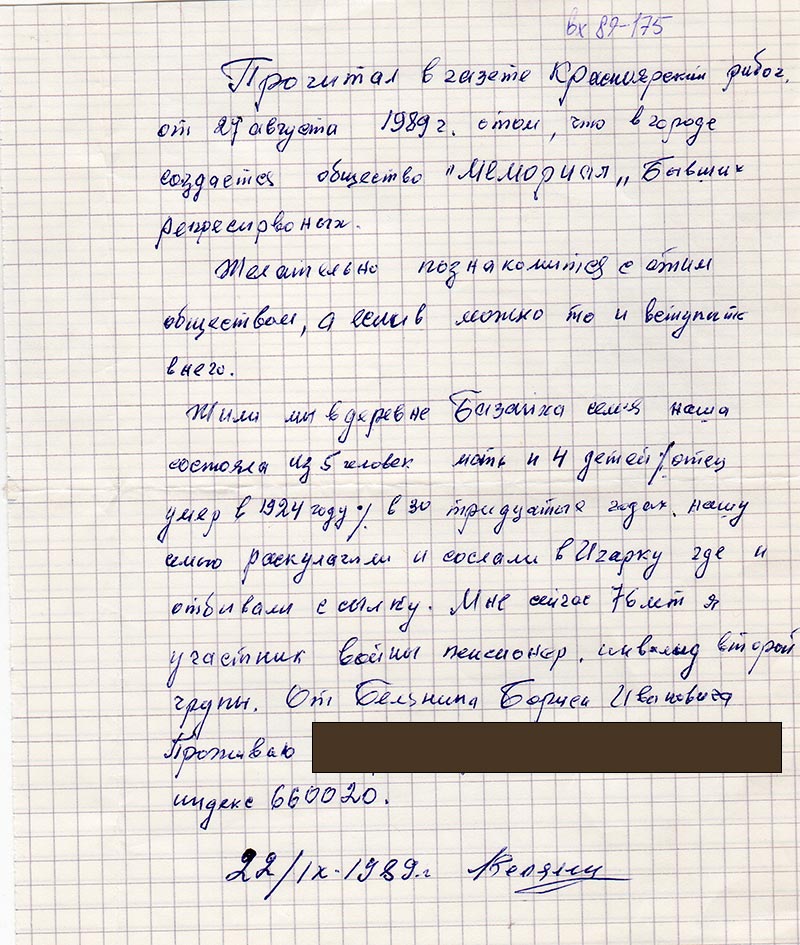 вх 89-175
Прочитал в газете Красноярский рабоч.
от 27 августа 1989 г. о том, что в городе
создается общество "Мемориал„ Бывших
репресирвоных.
Желательно познакомится с этим
обществом, а если в можно то и вступить
в него.
Жили мы в деревне Базаиха семя наша
состояла из 5 человек мать и 4 детей /отец
умер в 1924 году/. в 30 тридцатых годах. нашу
семю раскулачили и сослали в Игарку где и
отбывали ссылку. Мне сейчас 76 лет я
участник войны пенсионер. инвалид второй
групы. От Бориса Ивановича
Проживаю
индекс 660020.
22/IX-1989.г